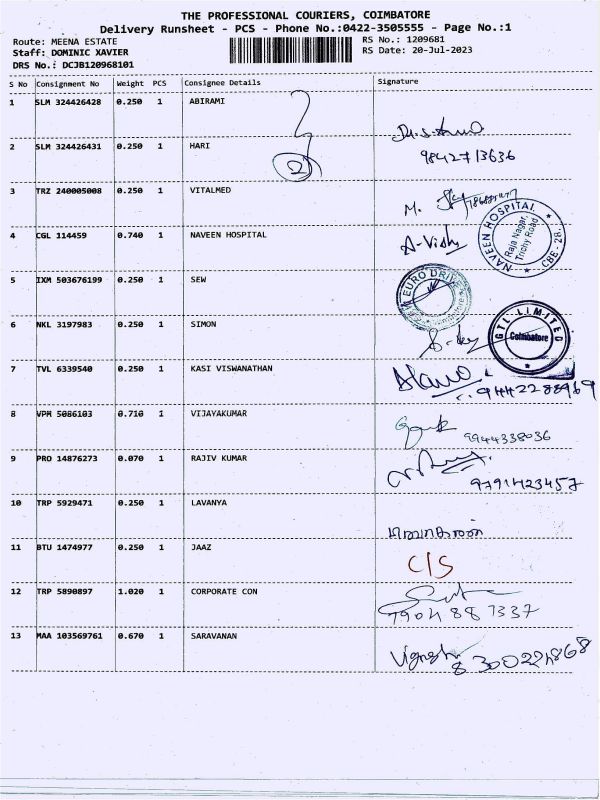 THE PROFESSIONAL COURIERS, COIMBATORE
Delivery Runsheet - PCS - Phone No.:0422-3505555 - Page No.:1
Route: MEENA ESTATE
Staff: DOMINIC XAVIER
DRS No.: DCJB120968101
RS No.: 1209681
RS Date: 20-Jul-2023
S No Consignment No Weight PCS Consignee Details Signature
1 SLM 324426428 0.250 1 ABIRAMI
2 SLM 324426431 0.250 1 HARI 2 9842713636
3 TRZ 240005008 0.250 1 VITALMED M.
4 CGL 114459 0.740 1 NAVEEN HOSPITAL A-Vishy
NAVEEN HOSPITAL
Raja Nagar,
Trichy Road
CBE - 28.
5 IXM 503676199 0.250 1 SEW
EURO DRIVE
6 NKL 3197983 0.250 1 SIMON
GTL LIMITED
Coimbatore
7 TVL 6339540 0.250 1 KASI VISWANATHAN
9442288969
8 VPM 5086103 0.710 1 VIJAYAKUMAR
9944338036
9 PRO 14876273 0.070 1 RAJIV KUMAR
9791423457
10 TRP 5929471 0.250 1 LAVANYA
11 BTU 1474977 0.250 1 JAAZ C/S
12 TRP 5890897 1.020 1 CORPORATE CON
7904887337
13 MAA 103569761 0.670 1 SARAVANAN Vignesh
8300224868